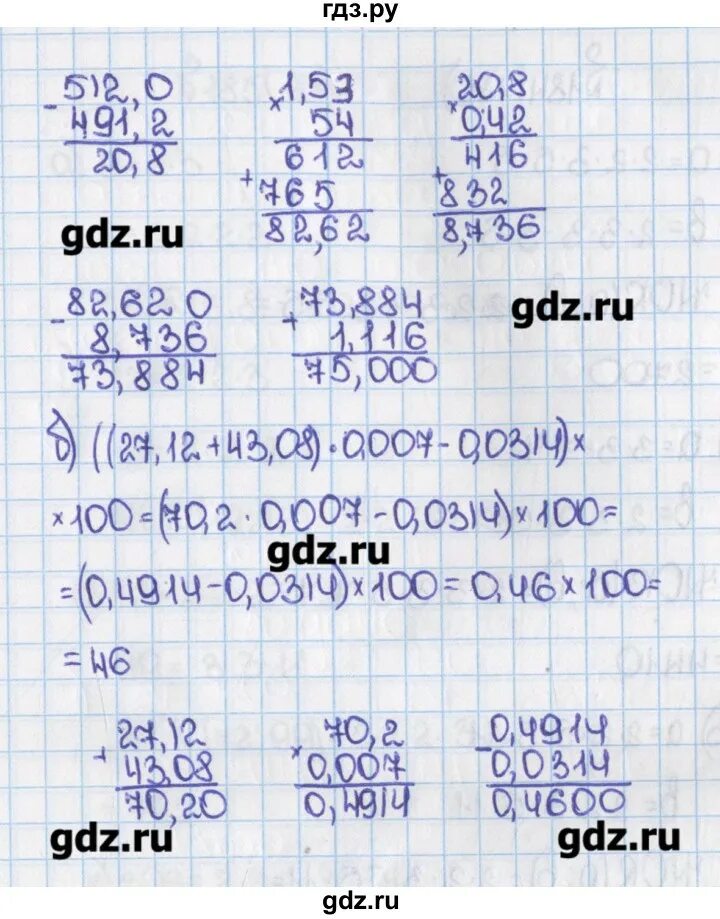 гдз.ру
- 512,0
491,2
20,8
× 1,53
54
612
+ 765
82,62
20,8
× 0,42
416
+ 832
8,736
gdz.ru
- 82,620
8,736
73,884
+ 73,884
1,116
75,000
gdz.ru
б) ((27,12+43,08)·0,007-0,0314)×
×100=(70,2·0,007-0,0314)×100=
gdz.ru
=(0,4914-0,0314)×100=0,46×100=
=46
+ 27,12
43,08
70,20
× 70,2
0,007
0,4914
- 0,4914
0,0314
0,4600
gdz.ru
gdz.ru
gdz.ru